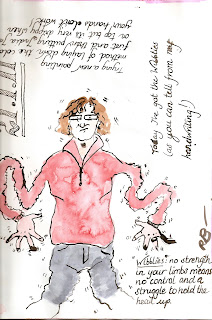 Trying a new painting
method of laying down the color
first and then putting India ink
on top but its very drippy when
your hands don't work!
Today I've got the Wibblies
(as you can tell from my
handwriting!)
Wibblies: no strength
in your limbs means
no control and a
struggle to hold the
head up.